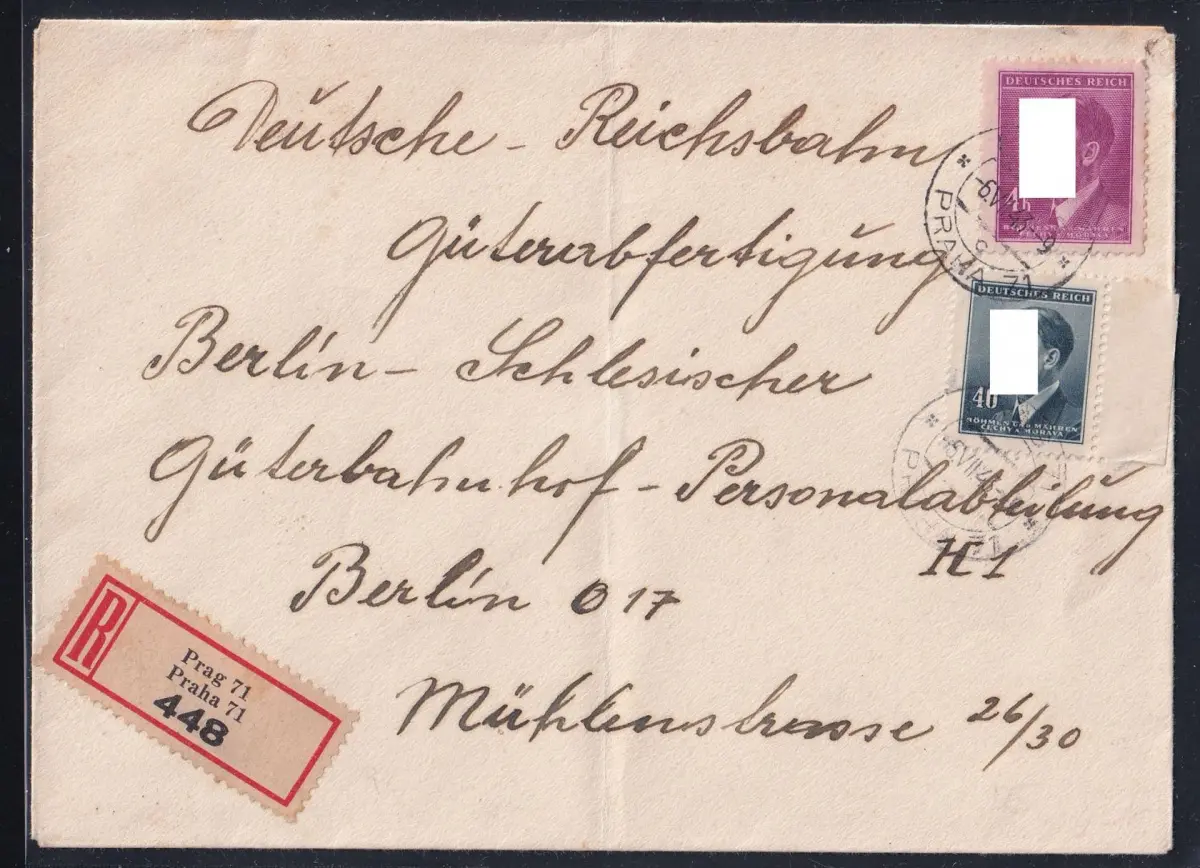 Deutsche - Reichsbahn
Güterabfertigung
Berlin - Schlesischer
Güterbahnhof - Personalabteilung
H1
Berlin O 17
Mühlenstrasse 26/30
DEUTSCHES REICH
BÖHMEN und MÄHREN
ČECHY a MORAVA
PRAHA 71
DEUTSCHES REICH
40
BÖHMEN und MÄHREN
ČECHY a MORAVA
R
Prag 71
Praha 71
448